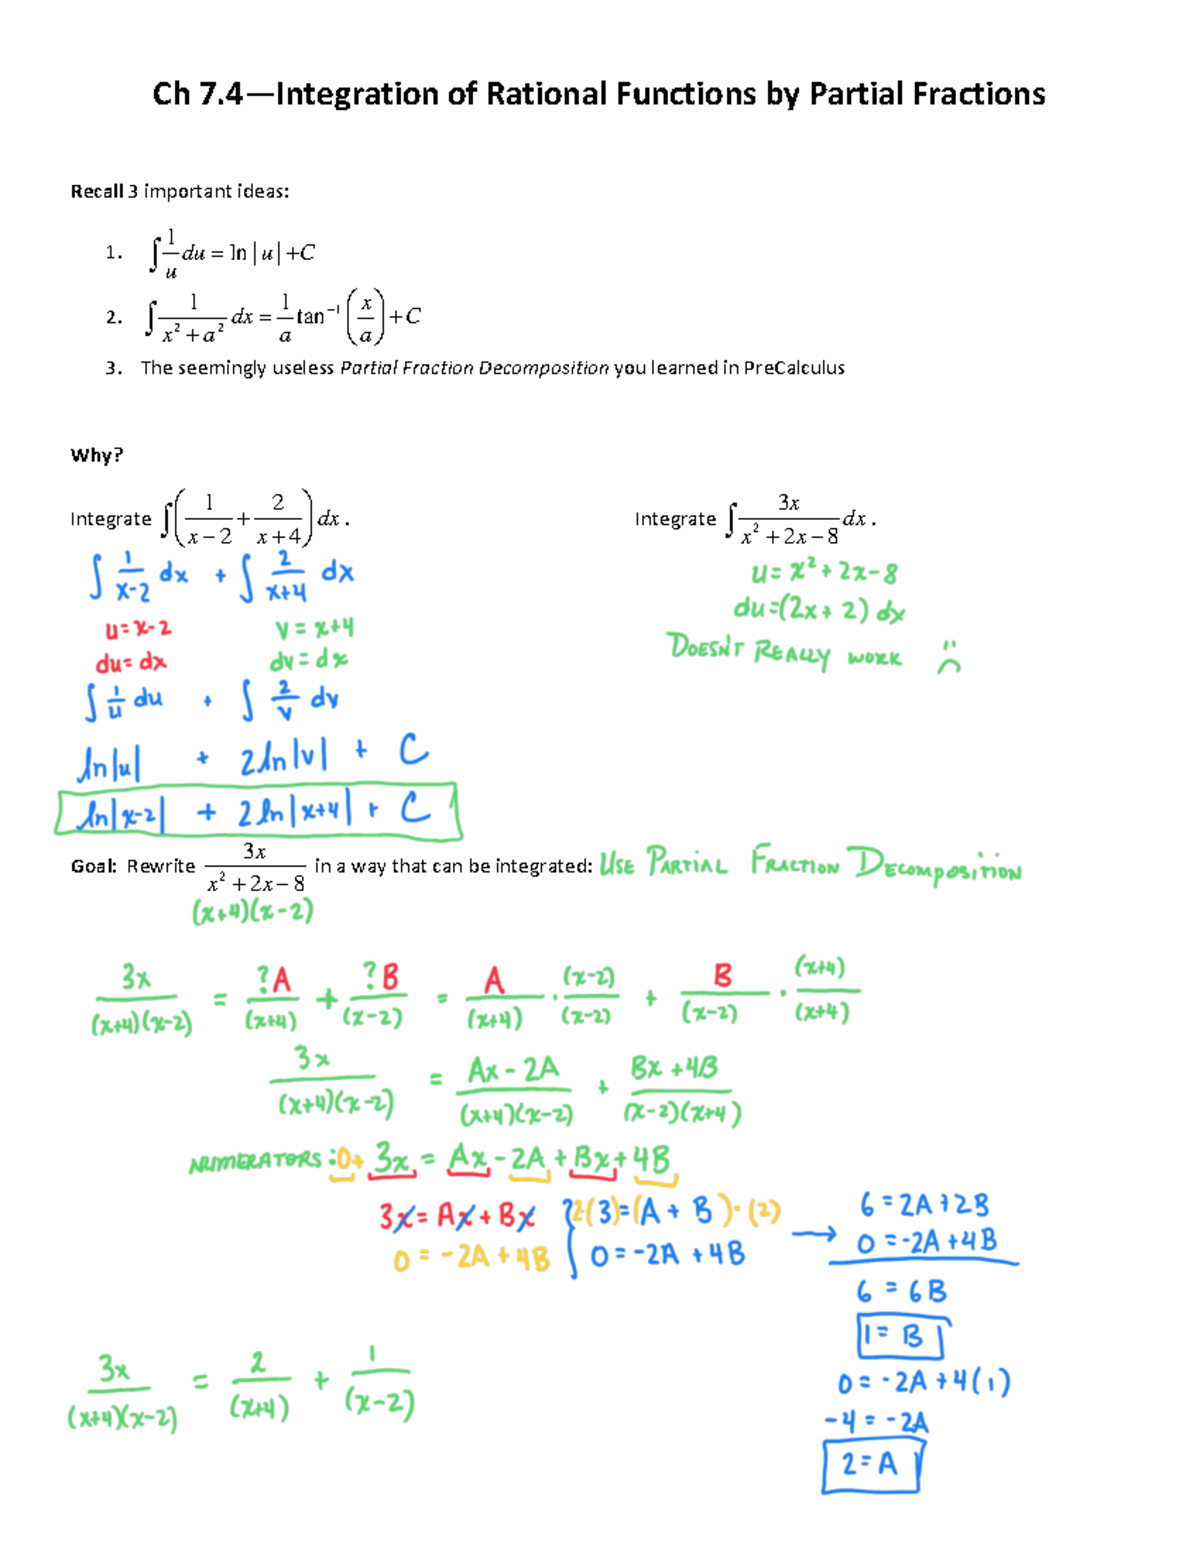 Ch 7.4—Integration of Rational Functions by Partial Fractions
Recall 3 important ideas:
1. ∫ 1/u du = ln | u | +C
2. ∫ 1/(x² + a²) dx = 1/a tan⁻¹ (x/a) + C
3. The seemingly useless Partial Fraction Decomposition you learned in PreCalculus
Why?
Integrate ∫ (1/(x − 2) + 2/(x + 4)) dx .
∫ 1/(x-2) dx + ∫ 2/(x+4) dx
u = x-2 v = x+4
du = dx dv = dx
∫ 1/u du + ∫ 2/v dv
ln|u| + 2ln|v| + C
ln|x-2| + 2ln|x+4| + C
Integrate ∫ 3x/(x² + 2x − 8) dx .
u = x² + 2x - 8
du = (2x + 2) dx
DOESN'T REALLY WORK :(
Goal: Rewrite 3x/(x² + 2x − 8) in a way that can be integrated: USE PARTIAL FRACTION DECOMPOSITION
(x+4)(x-2)
3x/((x+4)(x-2)) = ?A/(x+4) + ?B/(x-2) = A/(x+4) · (x-2)/(x-2) + B/(x-2) · (x+4)/(x+4)
3x/((x+4)(x-2)) = (Ax - 2A)/((x+4)(x-2)) + (Bx + 4B)/((x-2)(x+4))
NUMERATORS: 0+ 3x = Ax - 2A + Bx + 4B
3x = Ax + Bx 2(3) = (A + B) · (2)
0 = -2A + 4B 0 = -2A + 4B
→ 6 = 2A + 2B
0 = -2A + 4B
6 = 6B
1 = B
0 = -2A + 4(1)
-4 = -2A
2 = A
3x/((x+4)(x-2)) = 2/(x+4) + 1/(x-2)